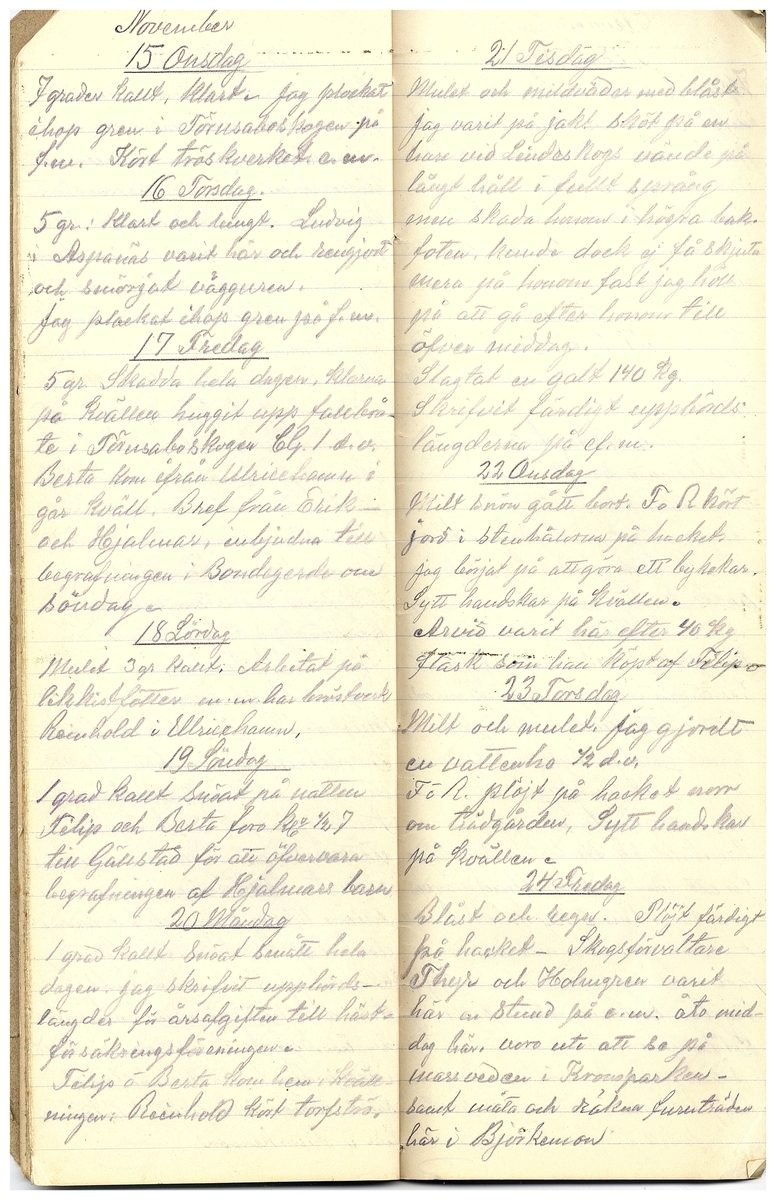 November
15 Onsdag
7 grader kallt, klart. Jag plocket
ihop gren i Törnsaboskogen på
f.m. Kört tröskverket e.m.
16 Torsdag.
5 gr. klart och lungt. Ludvig
i Aspanäs varit här och rengjort
och smörjat vägguren.
Jag plockat ihop gren på f.m.
17 Fredag
5 gr Skadda hela dagen, klarna
på kvällen huggit upp
te i Törnsaboskogen 1 d.v.
Berta kom ifrån Ulricehamn i
går kväll. Bref från Erik
och Hjalmar, inbjudna till
begrafningen i Bondegerde om
söndag.
18 Lördag
Mulet 3 gr kallt. Arbetat på
likkistfötter m.m har
Reinhold i Ulricehamn.
19 Söndag
1 grad kallt snöat på natten
Filip och Berta foro kl 1/2 7
till Gällstad för att öfvervara
begrafningen af Hjalmars barn
20 Måndag
1 grad kallt snöat smått hela
dagen. jag skrifvit uppbörds-
längder för årsafgiften till häst-
försäkringsföreningen.
Filip o Berta kom hem i kväll-
ningen. Reinhold kört torfströ.
21 Tisdag
Mulet och mildväder med blåst.
jag varit på jakt sköt på en
hare vid Lindeskogs vände på
långt håll i fullt språng
men skada honom i högra bak-
foten, kunde dock ej få skjuta
mera på honom fast jag höll
på att gå efter honom till
öfver middag.
Slagtat en galt 140 kg.
Skrifvit färdigt uppbörds-
längderna på e.m.
22 Onsdag
Milt snön gått bort. F o R kört
jord i stenhålorna på hacket.
jag börjat på att göra ett bykekar.
Sytt handskar på kvällen.
Arvid varit här efter 40 kg
fläsk som han köpt af Filip
23 Torsdag
Milt och mulet. Jag gjordt
en vattenho 1/2 d.v.
F o R. plöjt på hacket
om trädgården, Sytt handskar
på kvällen.
24 Fredag
Blåst och regn. Plöjt färdigt
på hacket - Skogsförvaltare
och Holmgren varit
här en stund på e.m. åto mid-
dag här. voro ute att se på
massveden i Kronoparken -
samt mäta och räkna furuträden
här i Björkemon